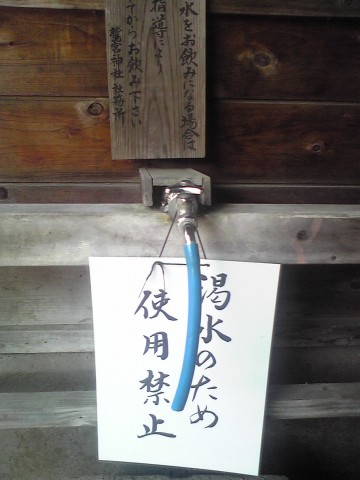 水をお飲みになる場合は
指導等により
てからお飲み下さい
鷲宮神社 社務所
渇水のため
使用禁止